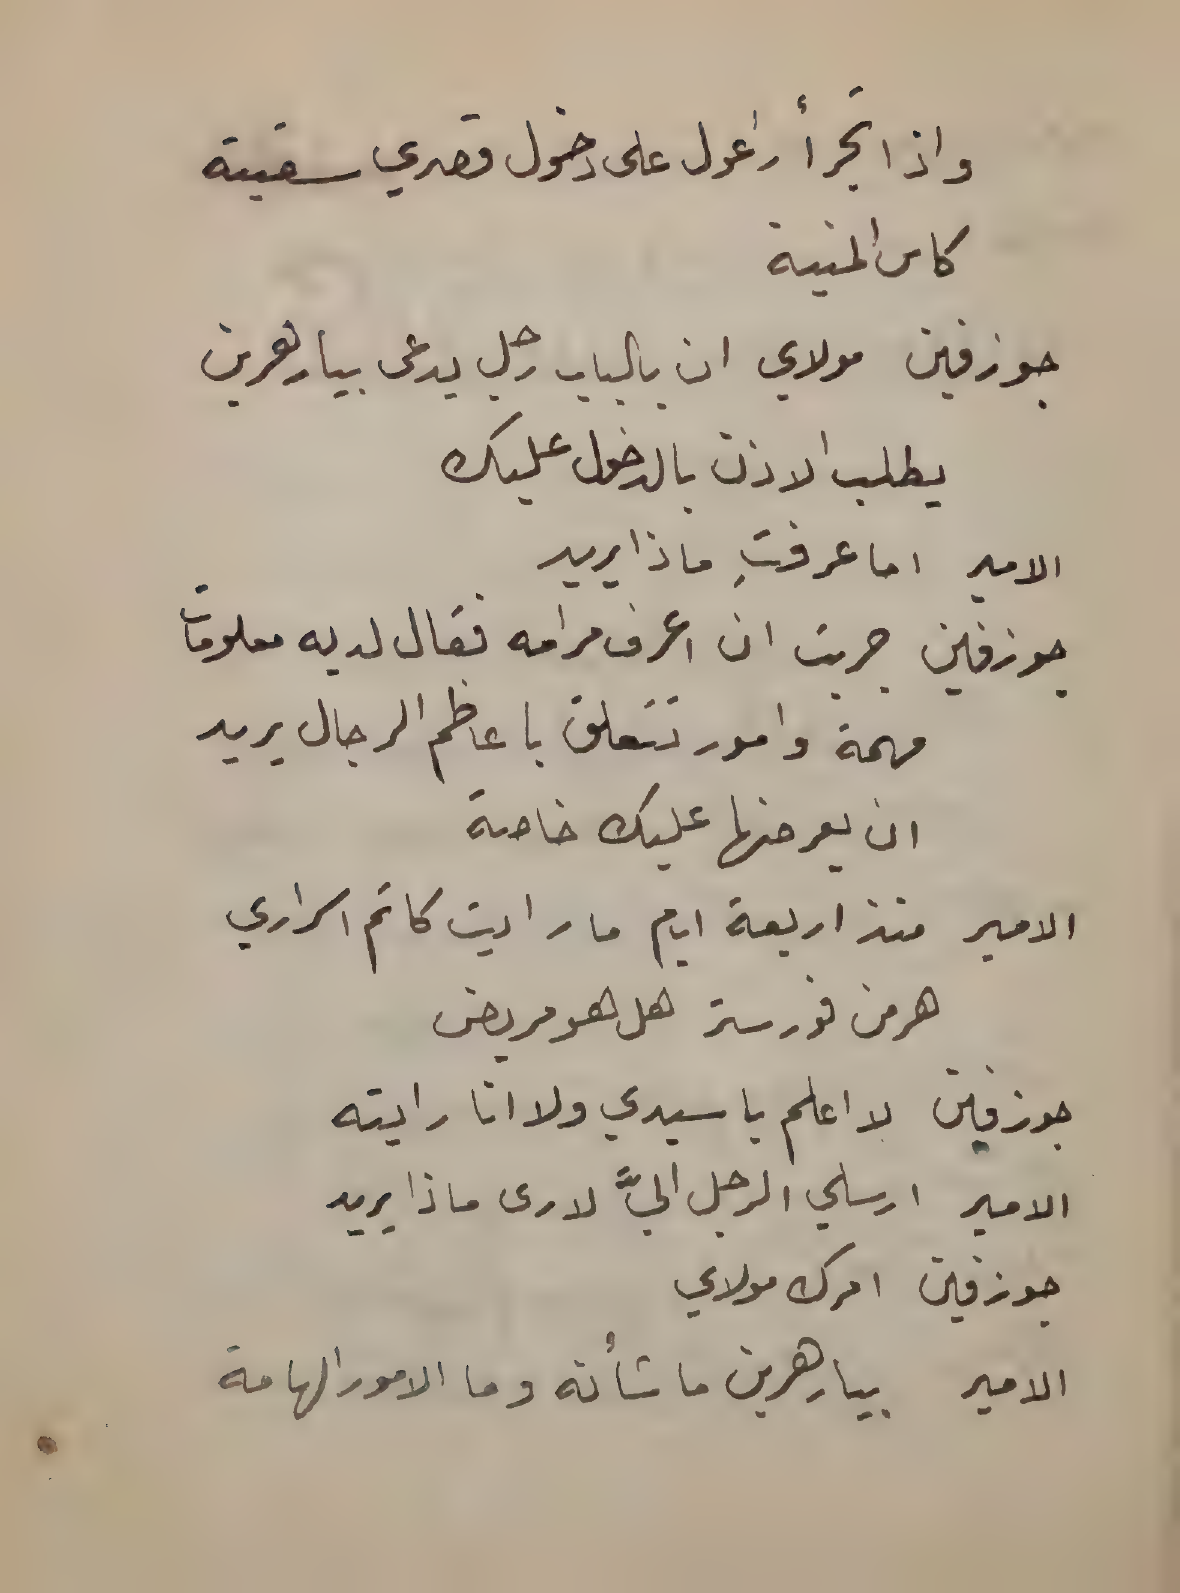 واذا تجرأ راغول على دخول قصري سقيته
كاس المنية
جوزفين مولاي ان بالباب رجل يدعى بيار هرين
يطلب الاذن بالدخول عليك
الامير اما عرفتِ ماذا يريد
جوزفين جربت ان اعرف مرامه فقال لديه معلومات
مهمة وامور تتعلق باعاظم الرجال يريد
ان يعرضها عليك خاصة
الامير منذ اربعة ايام ما رايت كاتم اسراري
هرمن فورستر هل هو مريض
جوزفين لا اعلم يا سيدي ولا انا رايته
الامير ارسلي الرجل اليَّ لارى ماذا يريد
جوزفين امرك مولاي
الامير بيار هرين ما شأنه وما الامور الهامة